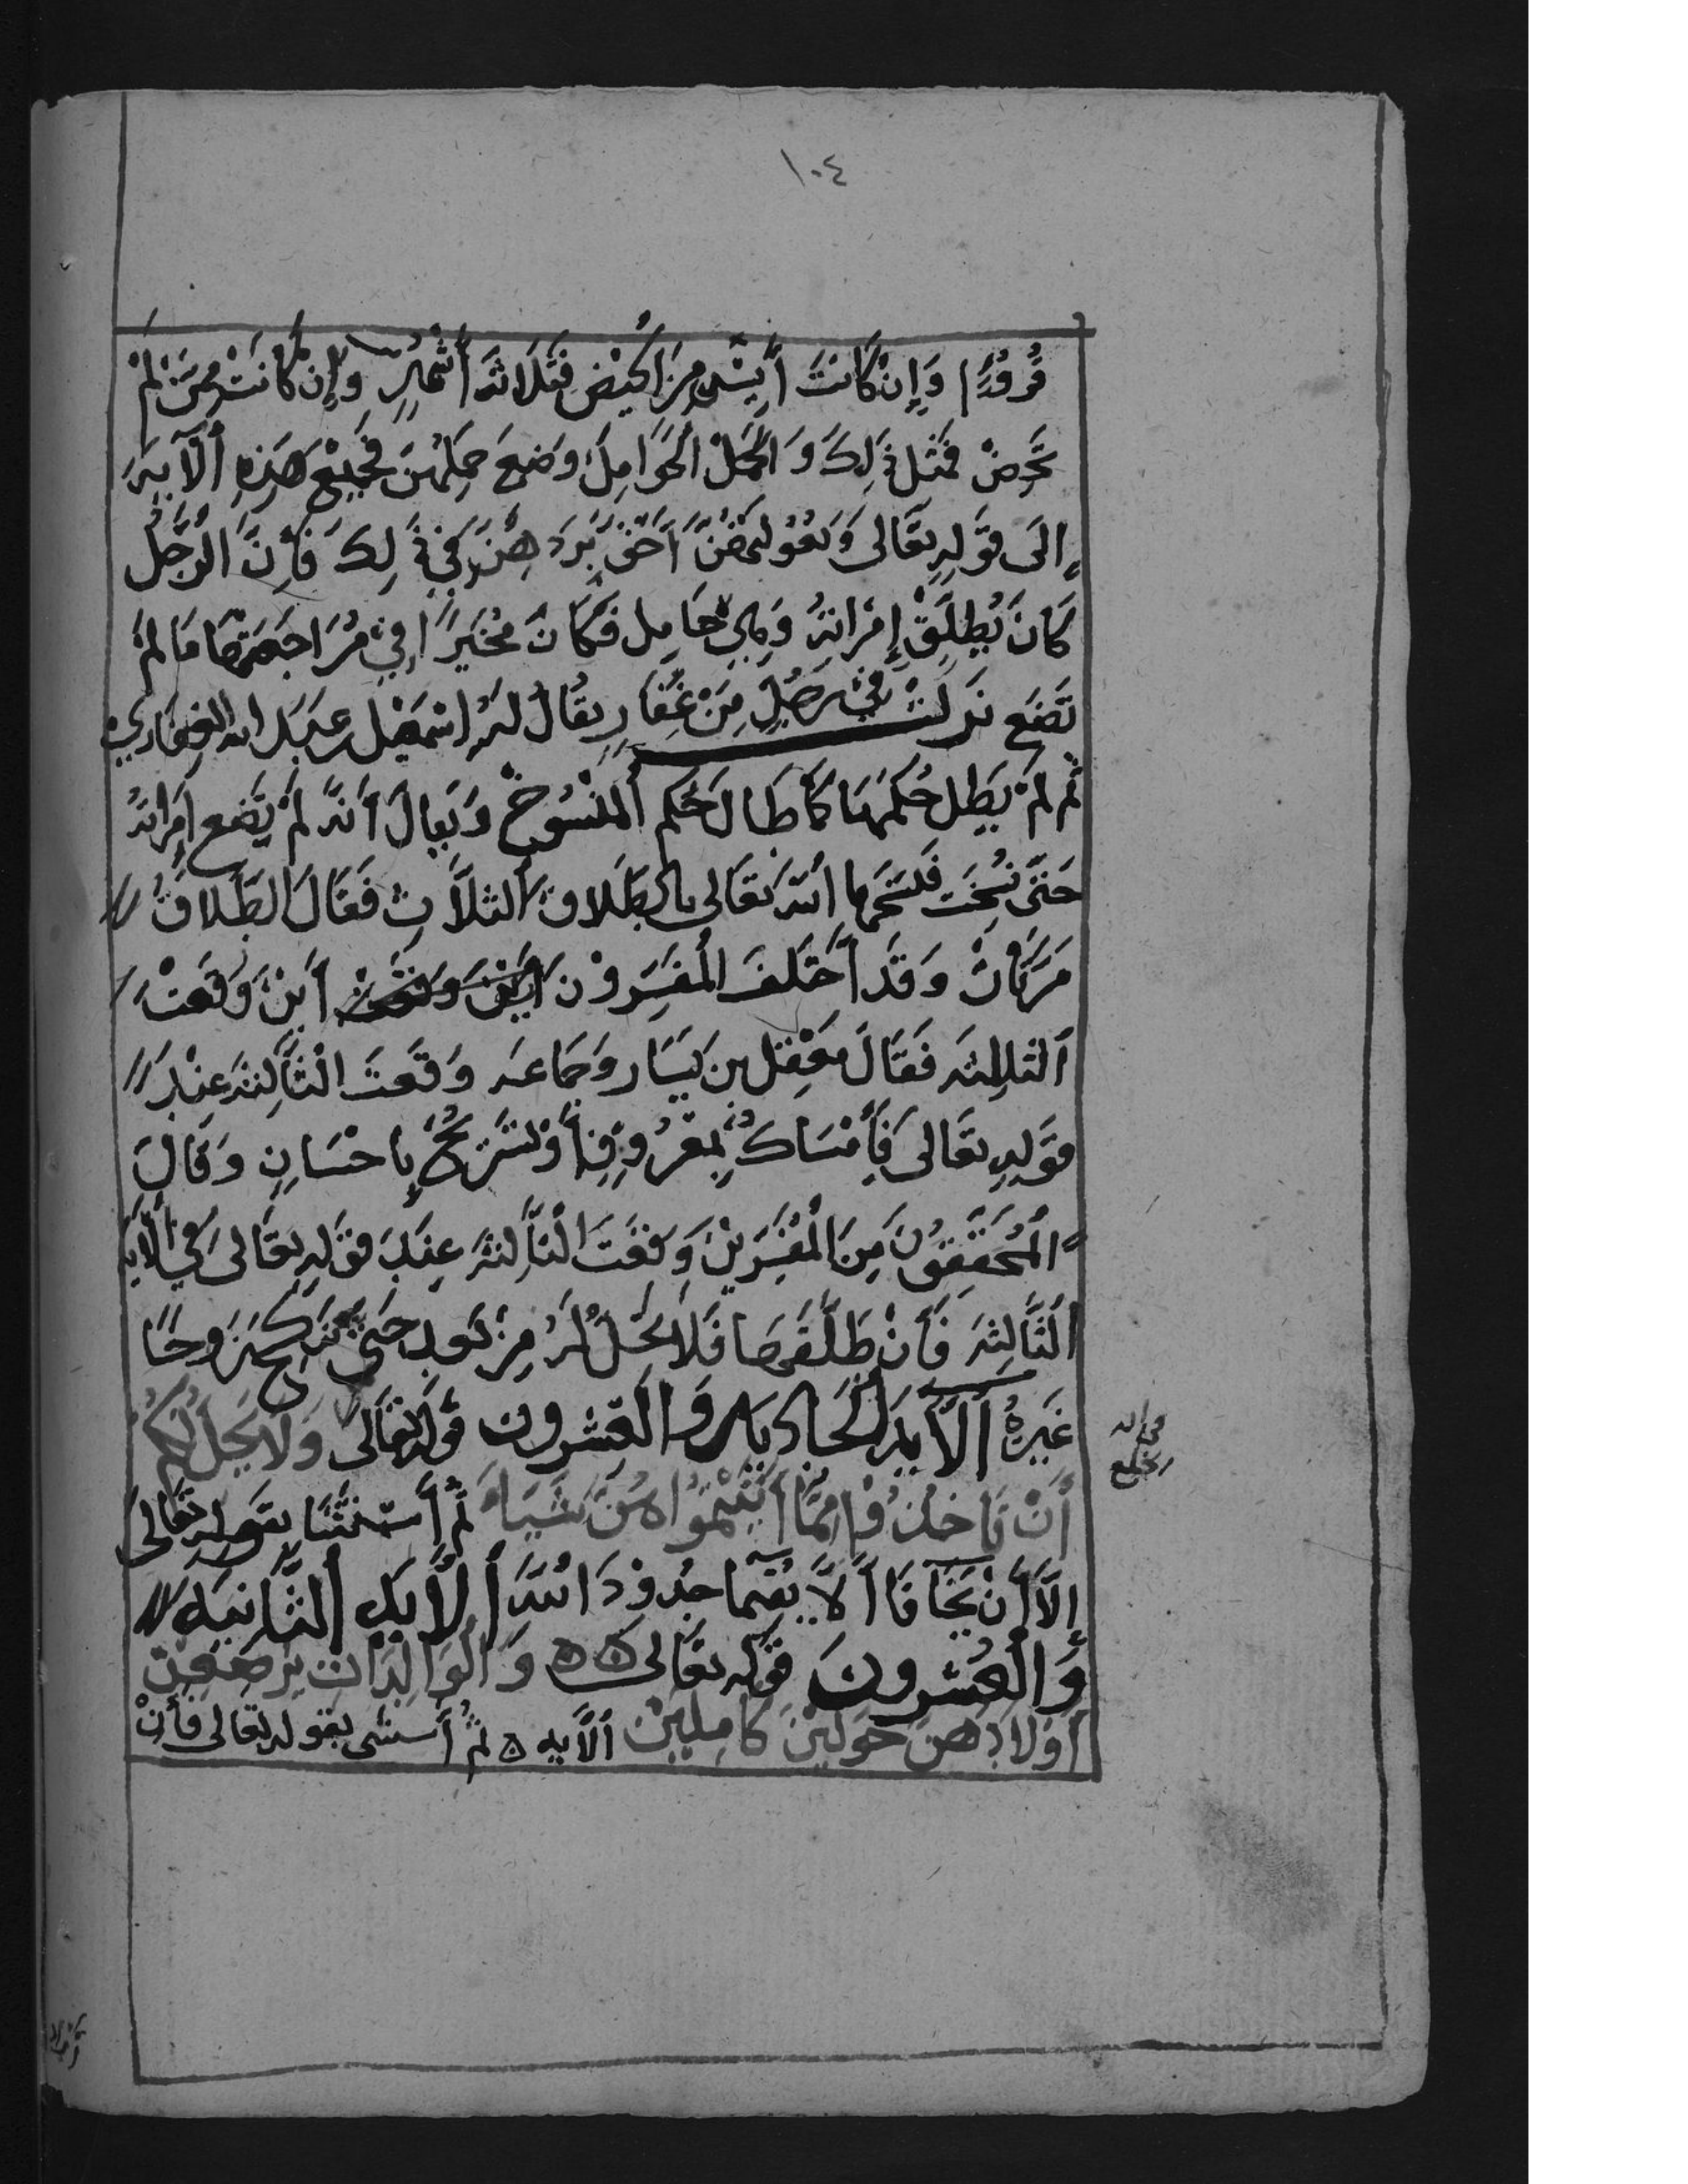 ١٠٤
قُروُءٍ وَإِنْ كَانَتْ أَيِسَتْ مِنَ الحَيْضِ فَثَلَاثَة أَشْهُرٍ وَإِنْ كَانَتْ مِمَّنْ لَمْ
تَحِضْ فَمَثَل ذَلِكَ وَأَجَلُ الْحَوَامِلِ وَضْعَ حَمْلِهُنَّ فَجَمِيْعُ هَذِهِ الْآيَة
إِلَى قَوْلِهِ تَعَالَى وَبُعُوْلَتُهُنَّ أَحَقُّ بِرَدِّهِنَّ فِي ذَلِكَ فَأِنَّ الرَّجُلَ
كَانَ يُطَلِّقْ إِمْرَاتَهُ وَهِيَ حَامِل فَكَانَ مُخَيَّرًا فِيْ مُرَاجَعَتِهَا مَا لَمْ
تَضَع نَزَلَتْ فِيْ رَجُلٍ مِنْ غُفَارٍ يُقَالُ لَهُ اسْمَعِيْل بن عَبْد الله الغفاري
ثُم لَمْ يَطِل حُكْمُهَا كَمَا طَالَ حُكْم الْمَنْسُوخ وَيُقَالَ أَنَّهُ لَمْ تَضَع إِمْرَاتهُ
حَتَّى نُسِخَت فَنَسَخَهَا اللَّه تَعَالَى بِالطَّلَاق الثلَاثِ فَقَالَ الطَّلَاقُ
مَرَّتَانْ وَقَد أَخْتَلَفَ الْمُفَسِّرُوْنَ أَيْنَ وَقَعَتْ أَيْنَ وَقَعَتْ
الثالثه فَقَالَ مَعْقِل بن يَسَار وَجَمَاعه وَقَعَتَ الْثَّالِثَه عِنْدَ
قَوْلِهِ تَعَالَى فَأِمْسَاكٌ بِمَعْرُوفٍ أَوْ تَسْرِيْحٌ بِإحْسَانٍ وَقَالَ
الْمُحَقِّقُونَ مِنَ الْمُفَسِّرِيْنَ وَقَعَتَ الْثَّالِثَهُ عِنْدَ قَوْلِهِ تَعَالَى فِي الْآيَه
الْثَّالِثَه فَأنْ طَلَّقَهَا فَلَا تَحِلُّ لَهُ مِنْ بَعد حَتَّى تَنكِحَ زَوجًا
غَيْرهُ الْآيَه الْحَادِيَه وَالْعِشْرون قَوْلهُ تَعَالَى وَلَا يَحِل لَكُمْ
أَنْ تَاخُذُوْا مِمَّا أَتَيْتُمُوْا هُنَّ شَيْاءً ثُمَّ أَسْتَثْنَا بِقَولِهِ تَعَالَى
إِلَّا أَنْ يَخَافَا أَلَّا يُقِيْمَا حُدُوْدَ اللَّهِ الْآيَه الثَّانِيَه
وَالْعِشْرونَ قَوْلُه تَعَالَى وَالْوَالِدَات يُرْضِعْنَ
أَوْلَادَهُنَّ حَوْلَيْنَ كَامِلَيْنْ الْآيه ثم أَسْتَثْنَى بقوله تَعَالَى فَأنْ